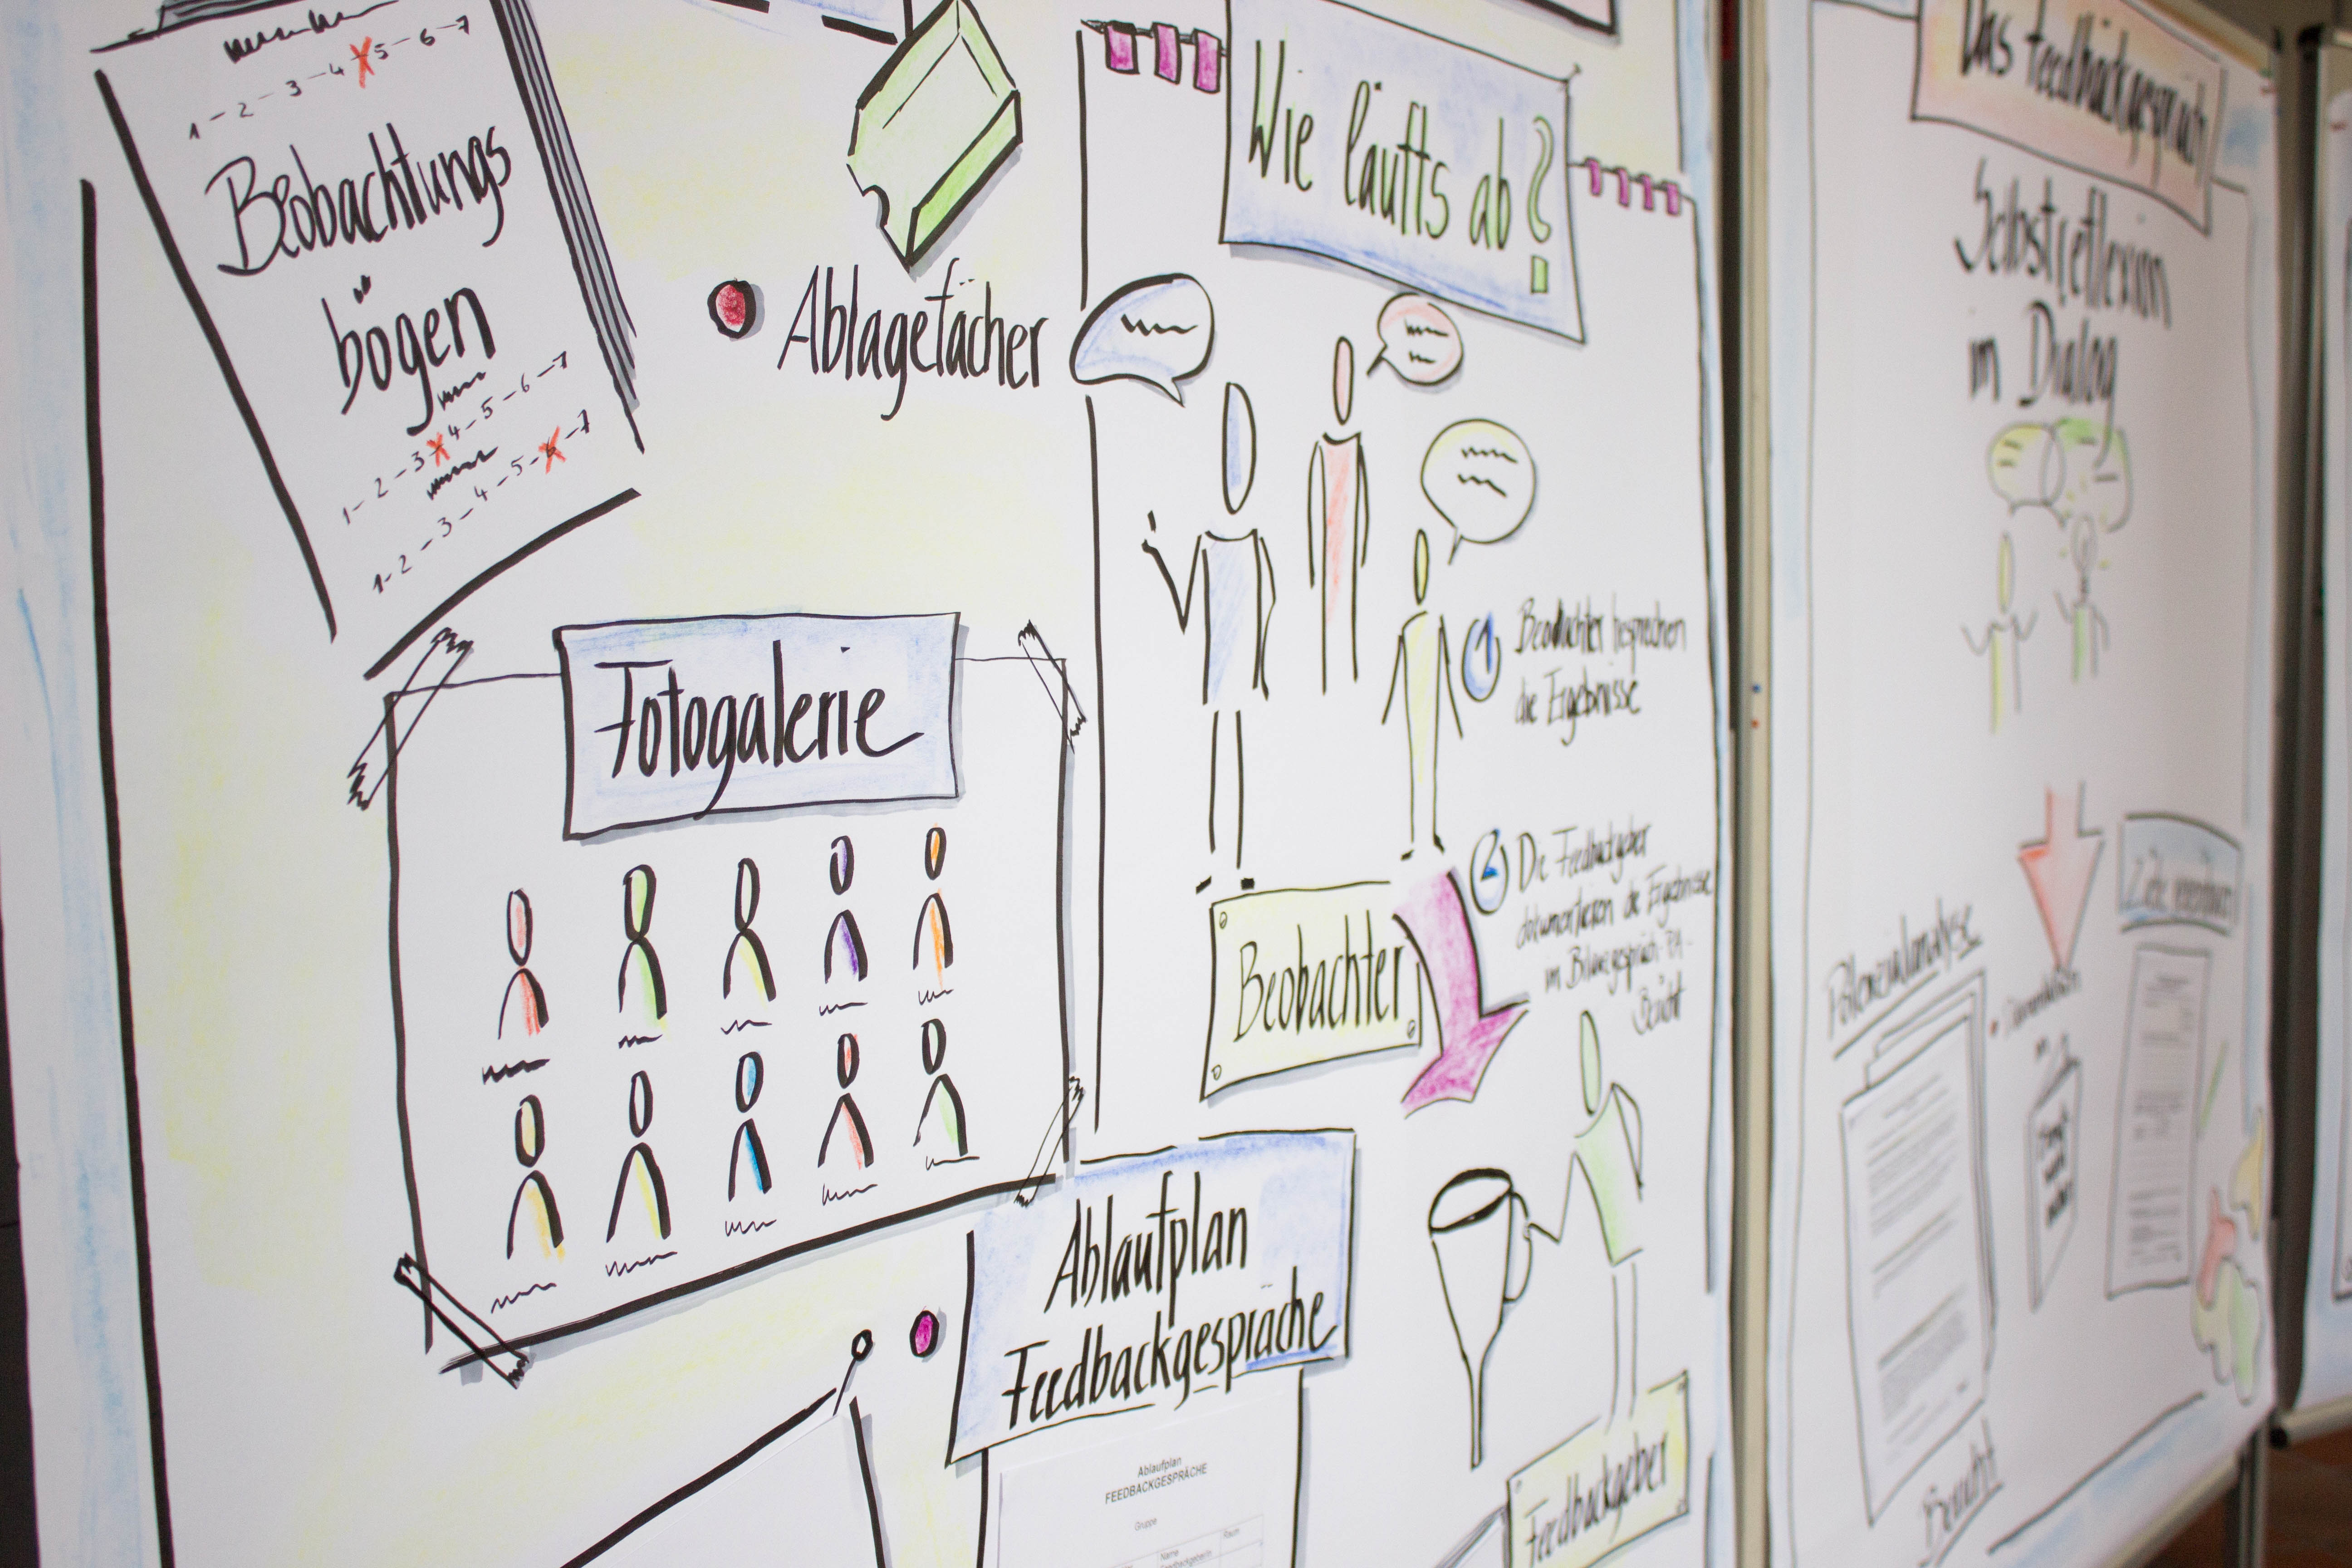 1-2-3-4-5-6-7
Beobachtungs
bögen
1-2-3-4-5-6-7
1-2-3-4-5-6-7
Ablagefächer
Fotogalerie
Wie läufts ab?
1 Beobachter besprechen
die Ergebnisse
2 Die Feedbackgeber
dokumentieren die Ergebnisse
im Bilanzgespräch-PA-
Bericht
Beobachter
Ablaufplan
Feedbackgespräche
Ablaufplan
FEEDBACKGESPRÄCHE
Gruppe
Raum
Name
Feedbackgeber/in
Feedbackgeber
Das Feedbackgespräch
Selbstreflexion
im Dialog
Potenzialanalyse
Ziele vereinbaren
Bericht